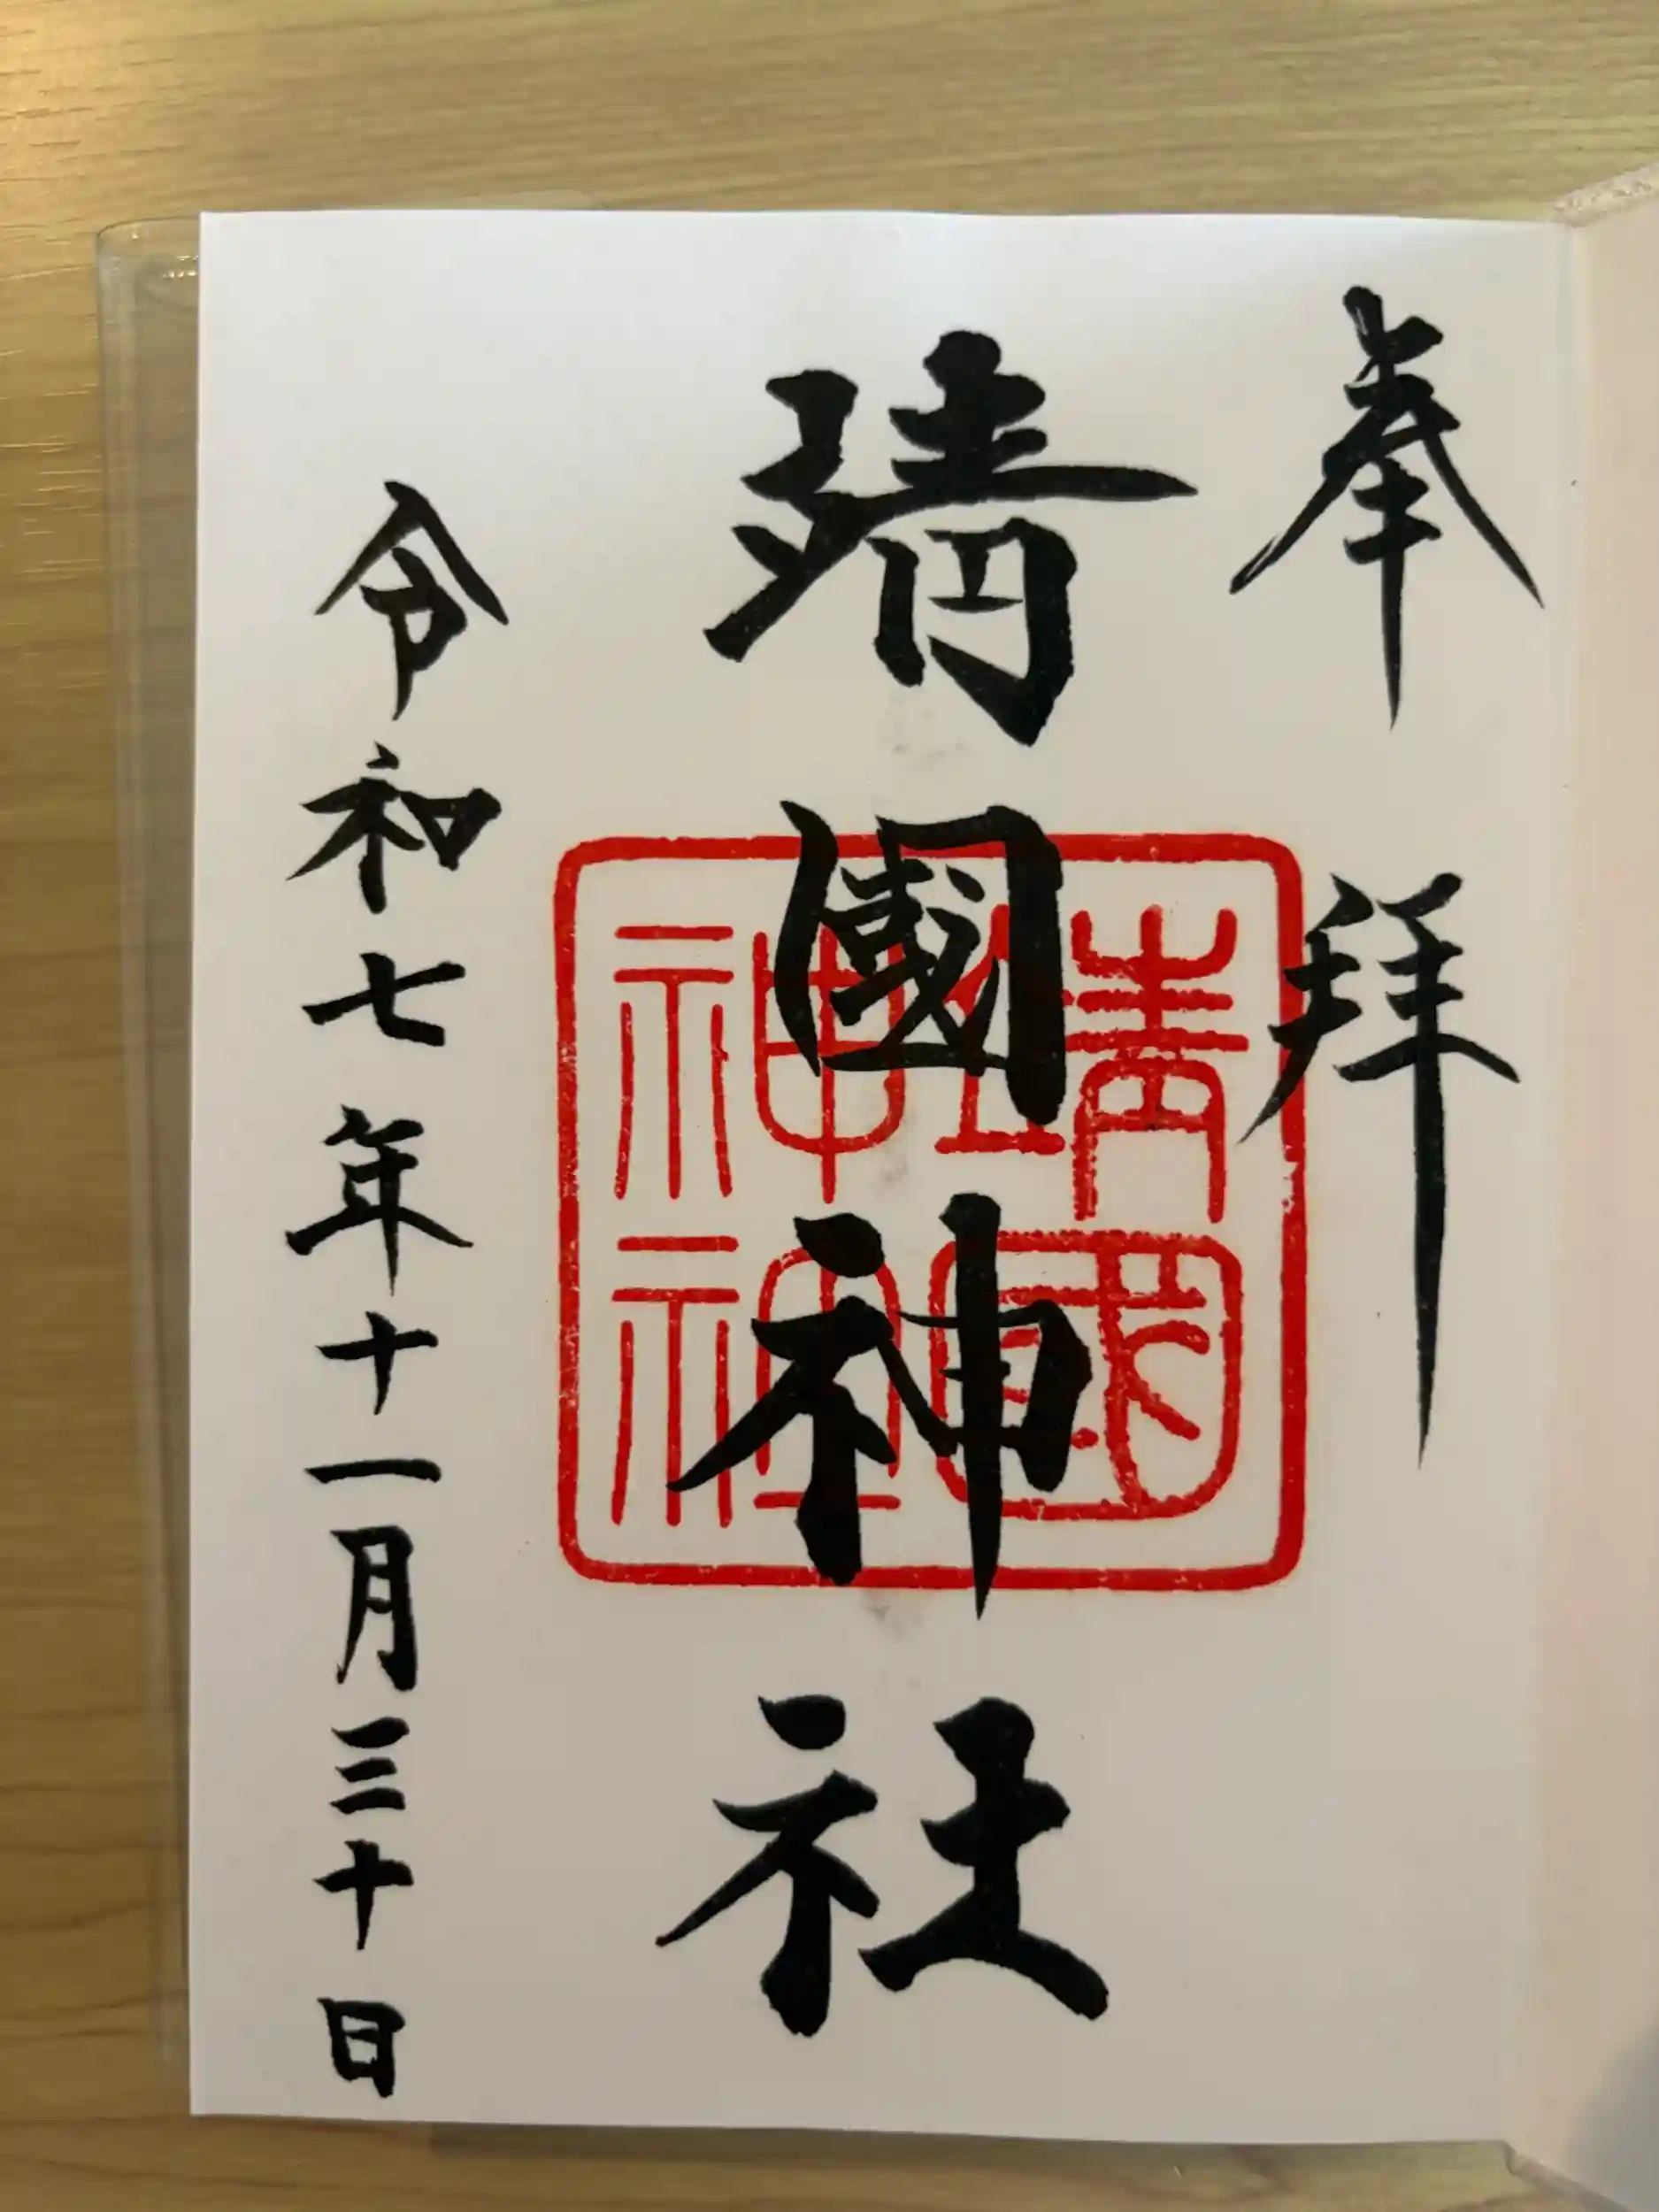 奉拝
靖國神社
靖國神社
令和七年十一月三十日